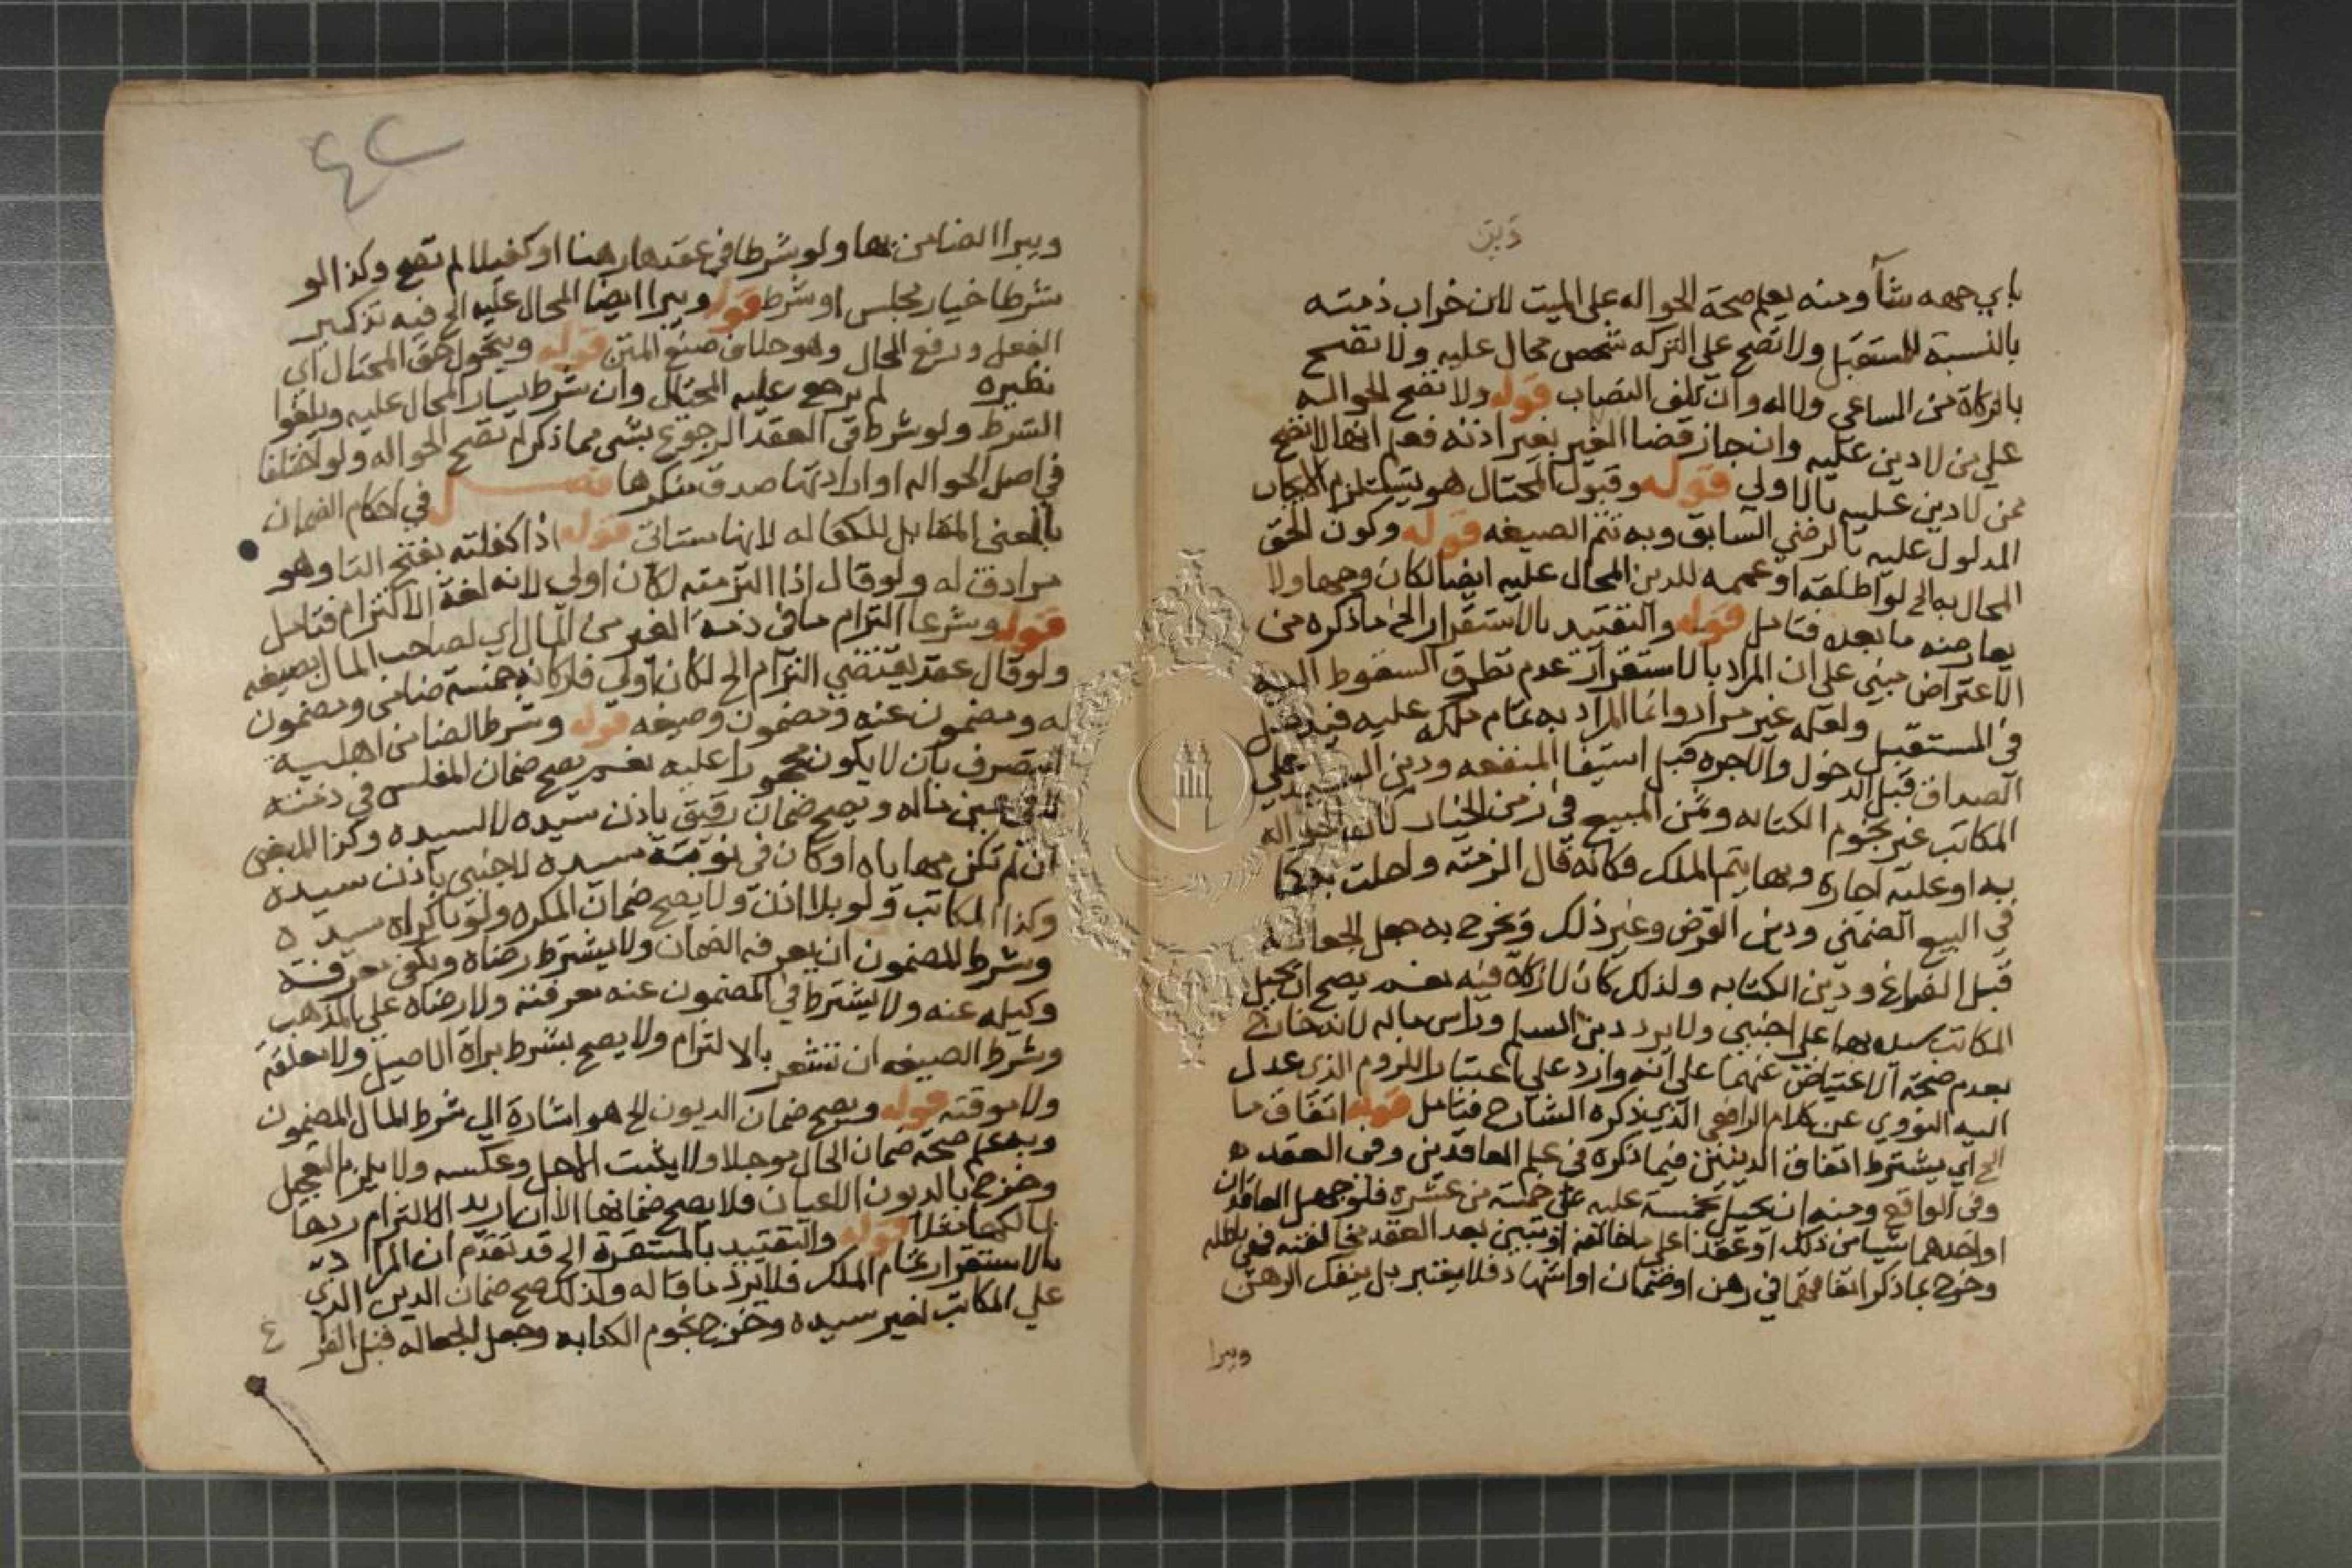 دين
باي جهه شآ ومنه يعلم صحة الحواله على الميت لان خراب ذمته
بالنسبة للمستقبل ولا تصح على التركه شخص محال عليه ولا تصح
بالزكاة من الساعي ولا له وان تلف النصاب قوله ولا تصح الحواله
علي من لا دين عليه وان جاز قضا الغير بغير اذنه فعلم انها لا تصح
ممن لا دين عليه بالاولي قوله وقبول المحتال هو يستلزم الايجاب
المدلول عليه بالرضي السابق وبه تتم الصيغه قوله وكون الحق
المحال به الخ لو اطلقه او عممه للدين المحال عليه ايضا لكان وجيها ولا
يعارضه ما بعده فتامل قوله والتقييد بالاستقرار الخ ما ذكره من
الاعتراض مبني على ان المراد بالاستقرار عدم تطرق السقوط اليه
في المستقبل ولعله غير مراد وانما المراد به تمام ملكه عليه فيدخل
الصداق قبل الدخول والاجره قبل استيفا المنفعه ودين السيد علي
المكاتب غير نجوم الكتابه وثمن المبيع في زمن الخيار لان الحواله
به او عليه اجازة وبها يتم الملك فكانه قال الزمته واحلت به كما
في البيع الضمني ودين القرض وغير ذلك وخرج به جعل الجعاله
قبل الفراغ ودين الكتابه ولذلك كان لا زكاة فيه نعم يصح ان يحيل
المكاتب سيده بها علي اجنبي ولا يرد دين السلم وراس ماله لانه خارج
بعدم صحة الاعتياض عنهما على انه وارد علي اعتبار اللزوم الذي عدل
اليه النووي عن كلام الرافعي الذي ذكره الشارح فتامل قوله اتفاق ما
الخ اي يشترط اتفاق الدينين فيما ذكره في علم العاقدين وفي العقد ه
وفي الواقع ومنه ان يحيل بخمسة عليه على خمسة من عشرة فلو جهل العاقدان
او احدهما شيا من ذلك او عقدا علي ما خالفه او تبين بعد العقد مخالفته فهي باطله
وخرج بما ذكر اتفاقهما في رهن او ضمان او اشهاد فلا يعتبر بل ينفك الرهن
ويبرا
٤٢
ويبرا الضامن بها ولو شرطا في عقدها رهنا او كفيلا لم تصح وكذا لو
شرطا خيار مجلس او شرط قوله ويبرا ايضا المحال عليه الخ فيه تذكير
الفعل ورفع المحال وهو خلاف صنيع المتن قوله ويتحول حق المحتال اي
نظيره لم يرجع عليه المحتال وان شرط يسار المحال عليه ويلغوا
الشرط ولو شرط في العقد الرجوع بشي مما ذكر لم تصح الحواله ولو اختلفا
في اصل الحواله او ارادتها صدق منكرها فصل في احكام الضمان
بالمعني المقابل للكفاله لانها ستاتي قوله اذا كفلته بفتح التا وهو
مرادف له ولو قال اذا التزمته لكان اولي لانه لغة الالتزام فتامل
قوله وشرعا التزام ما في ذمة الغير من المال اي لصاحب المال بصيغه
ولو قال عقد يقتضي التزام الخ لكان اولي فاركانه خمسة ضامن ومضمون
له ومضمون عنه ومضمون وصيغه قوله وشرط الضامن اهلية
التصرف بان لا يكون محجورا عليه نعم يصح ضمان المفلس في ذمته
لا في عين ماله ويصح ضمان رقيق باذن سيده لا لسيده وكذا المبعض
ان لم تكن مهاياه او كان في نوبة سيده لاجنبي باذن سيده
وكذا المكاتب ولو بلا اذن ولا يصح ضمان المكره ولو باكراه سيده
وشرط للمضمون ان يعرفه الضمان ولا يشترط رضاه ويكفي معرفة
وكيله عنه ولا يشترط في المضمون عنه معرفته ولا رضاه علي المذهب
وشرط الصيغه ان تشعر بالالتزام ولا يصح بشرط براة الاصيل ولا معلقة
ولا موقته قوله ويصح ضمان الديون الخ هو اشارة الي شرط المال المضمون
ويعلم صحة ضمان الحال موجلا ولا يثبت الاجل وعكسه ولا يلزم التعجيل
وخرج بالديون الاعيان فلا يصح ضمانها الا ان اريد الالتزام ردها
لمالكها مثلا قوله والتقييد بالمستقرة الخ قد تقدم ان المراد
بالاستقرار تمام الملك فلا يرد ما قاله ولذلك صح ضمان الدين الذي
علي المكاتب لغير سيده وخرج نجوم الكتابه وجعل الجعاله قبل الفرا
غ